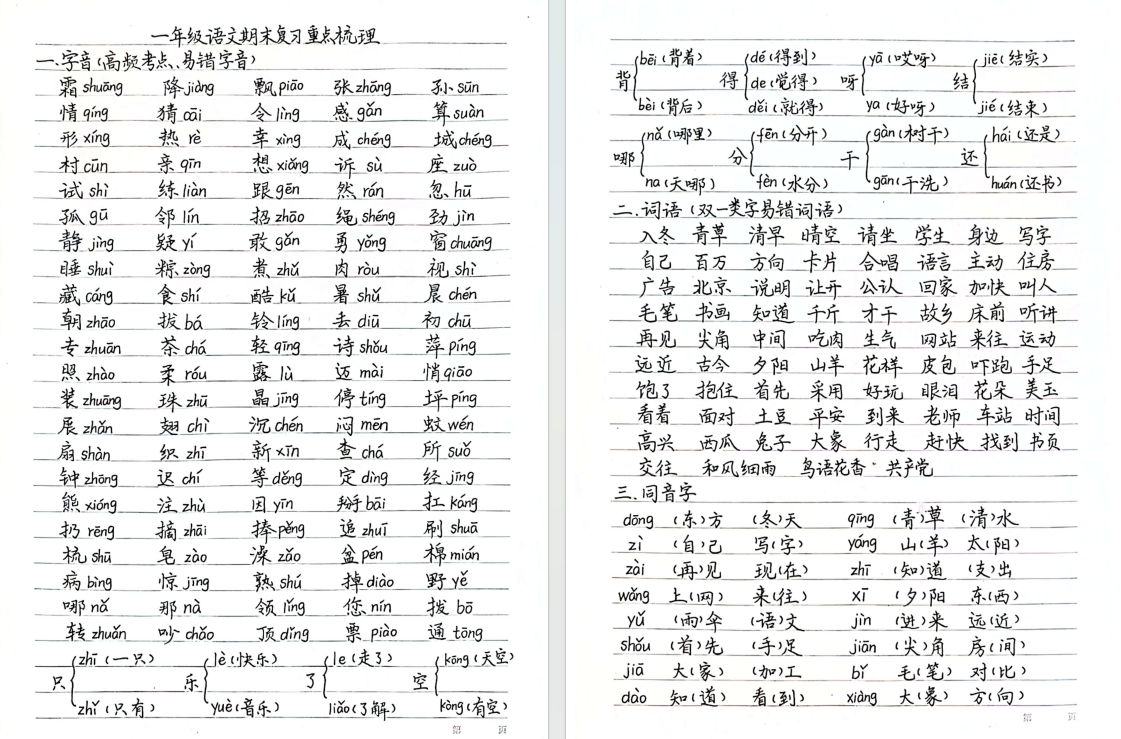 一年级语文期末复习重点梳理
一.字音(高频考点、易错字音)
霜 shuāng 降 jiàng 飘 piāo 张 zhāng 孙 sūn
情 qíng 猜 cāi 令 lìng 感 gǎn 算 suàn
形 xíng 热 rè 幸 xìng 成 chéng 城 chéng
村 cūn 亲 qīn 想 xiǎng 诉 sù 座 zuò
试 shì 练 liàn 跟 gēn 然 rán 忽 hū
孤 gū 邻 lín 招 zhāo 绳 shéng 劲 jìn
静 jìng 疑 yí 敢 gǎn 勇 yǒng 窗 chuāng
睡 shuì 粽 zòng 煮 zhǔ 肉 ròu 视 shì
藏 cáng 食 shí 酷 kù 暑 shǔ 晨 chén
朝 zhāo 拔 bá 铃 líng 丢 diū 初 chū
专 zhuān 茶 chá 轻 qīng 诗 shǒu 萍 píng
照 zhào 柔 róu 露 lù 迈 mài 悄 qiāo
装 zhuāng 珠 zhū 晶 jīng 停 tíng 坪 píng
展 zhǎn 翅 chì 沉 chén 闷 mēn 蚊 wén
扇 shàn 织 zhī 新 xīn 查 chá 所 suǒ
钟 zhōng 迟 chí 等 děng 定 dìng 经 jīng
熊 xióng 注 zhù 因 yīn 掰 bāi 扛 káng
扔 rēng 摘 zhāi 捧 pěng 追 zhuī 刷 shuā
梳 shū 皂 zào 澡 zǎo 盆 pén 棉 mián
病 bìng 惊 jīng 熟 shú 掉 diào 野 yě
哪 nǎ 那 nà 领 lǐng 您 nín 拨 bō
转 zhuǎn 吵 chǎo 顶 dǐng 票 piào 通 tōng
zhī (一只) lè (快乐) le (走了) kōng (天空)
只 乐 了 空
zhǐ (只有) yuè (音乐) liǎo (了解) kòng (有空)
第 页
bēi (背着) dé (得到) yā (哎呀) jiē (结实)
背 得 de (觉得) 呀 结
bèi (背后) děi (就得) ya (好呀) jié (结束)
nǎ (哪里) fēn (分开) gàn (树干) hái (还是)
哪 分 干 还
na (天哪) fèn (水分) gān (干洗) huán (还书)
二.词语(双一类字易错词语)
入冬 青草 清早 晴空 请坐 学生 身边 写字
自己 百万 方向 卡片 合唱 语言 主动 住房
广告 北京 说明 让开 公认 回家 加快 叫人
毛笔 书画 知道 千斤 才干 故乡 床前 听讲
再见 尖角 中间 吃肉 生气 网站 来往 运动
远近 古今 夕阳 山羊 花样 皮包 吓跑 手足
饱了 抱住 首先 采用 好玩 眼泪 花朵 美玉
看着 面对 土豆 平安 到来 老师 车站 时间
高兴 西瓜 兔子 大象 行走 赶快 找到 书页
交往 和风细雨 鸟语花香 共产党
三.同音字
dōng (东)方 (冬)天 qīng (青)草 (清)水
zì (自)己 写(字) yáng 山(羊) 太(阳)
zài (再)见 现(在) zhī (知)道 (支)出
wǎng 上(网) 来(往) xī (夕)阳 东(西)
yǔ (雨)伞 (语)文 jìn (进)来 远(近)
shǒu (首)先 (手)足 jiān (尖)角 房(间)
jiā 大(家) (加)工 bǐ 毛(笔) 对(比)
dào 知(道) 看(到) xiàng 大(象) 方(向)
第 页